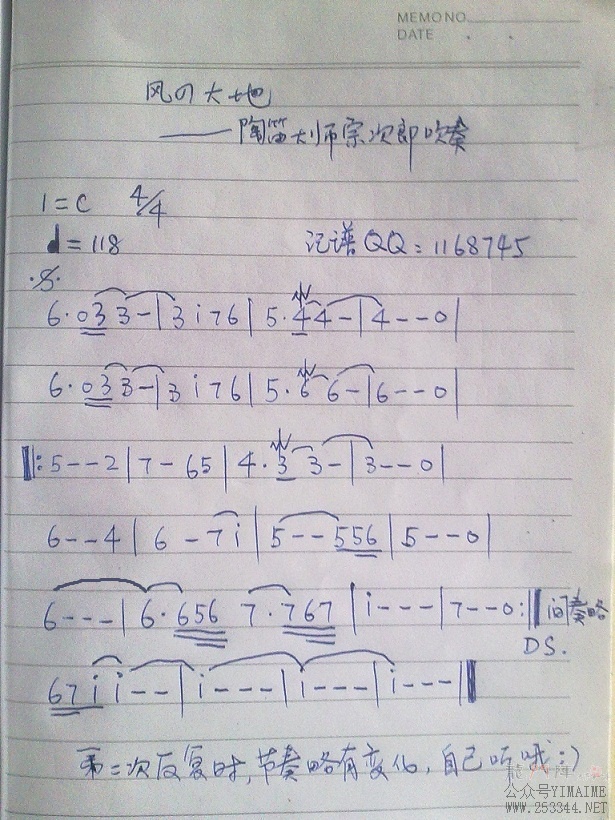 MEMO NO.
DATE . .
风の大地
——陶笛大师宗次郎吹奏
1=C 4/4
d=118 记谱QQ:1168745
·S·
6·033-|3i76|5·44-|4--0|
6·033-|3i76|5·66-|6--0|
‖:5--2|7-65|4·33-|3--0|
6--4|6-7i|5--556|5--0|
6---|6·656 7·767|i---|7--0:‖间奏略
DS.
67ii--|i---|i---|i---‖
第二次反复时,节奏略有变化,自己听哦:)
公众号YIMAIME
www.253344.NET